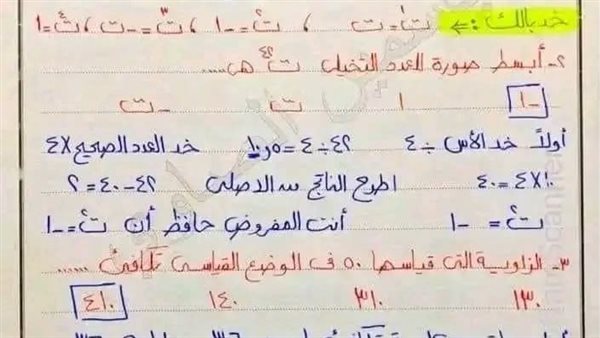 خد بالك :← ت¹ = ت ، ت² = -١ ، ت³ = -ت ، ت⁴ = ١
٢- أبسط صورة للعدد التخيلى ت⁴² هى .....
-١ ١ ت -ت
أولاً خد الأس ÷ ٤ ٤٢ ÷ ٤ = ١٠,٥ خد العدد الصحيح × ٤
١٠ × ٤ = ٤٠ اطرح الناتج من الاصلى ٤٢ - ٤٠ = ٢
ت² = -١ أنت المفروض حافظ أن ت² = -١
٣- الزاوية التى قياسها ٥٠ فى الوضع القياسى تكافئ ......
١٣٠ ٣١٠ ١٤٠ ٤١٠